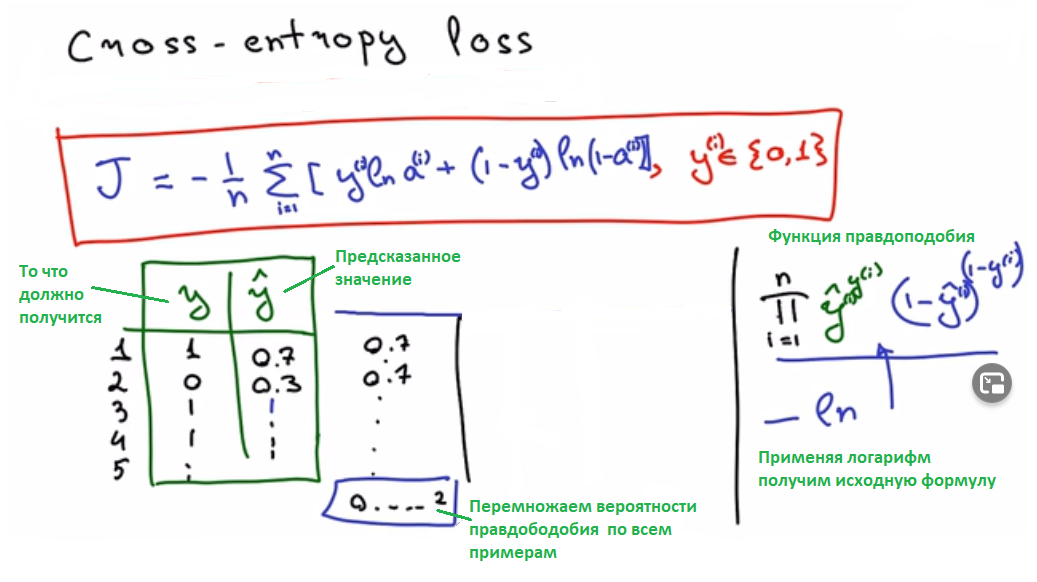 Cross-entropy loss
J = - 1/n Σ_{i=1}^{n} [ y^{(i)} ln a^{(i)} + (1-y^{(i)}) ln(1-a^{(i)})], y^{(i)} ∈ {0,1}
То что
должно
получится
y ŷ
Предсказанное
значение
1 1 0.7 0.7
2 0 0.3 0.7
3 1
4 1
5
0.... ?
Перемножаем вероятности
правдободобия по всем
примерам
Функция правдоподобия
∏_{i=1}^{n} ŷ^{(i) y^{(i)}} (1-ŷ^{(i)})^{(1-y^{(i)})}
- ln
Применяя логарифм
получим исходную формулу